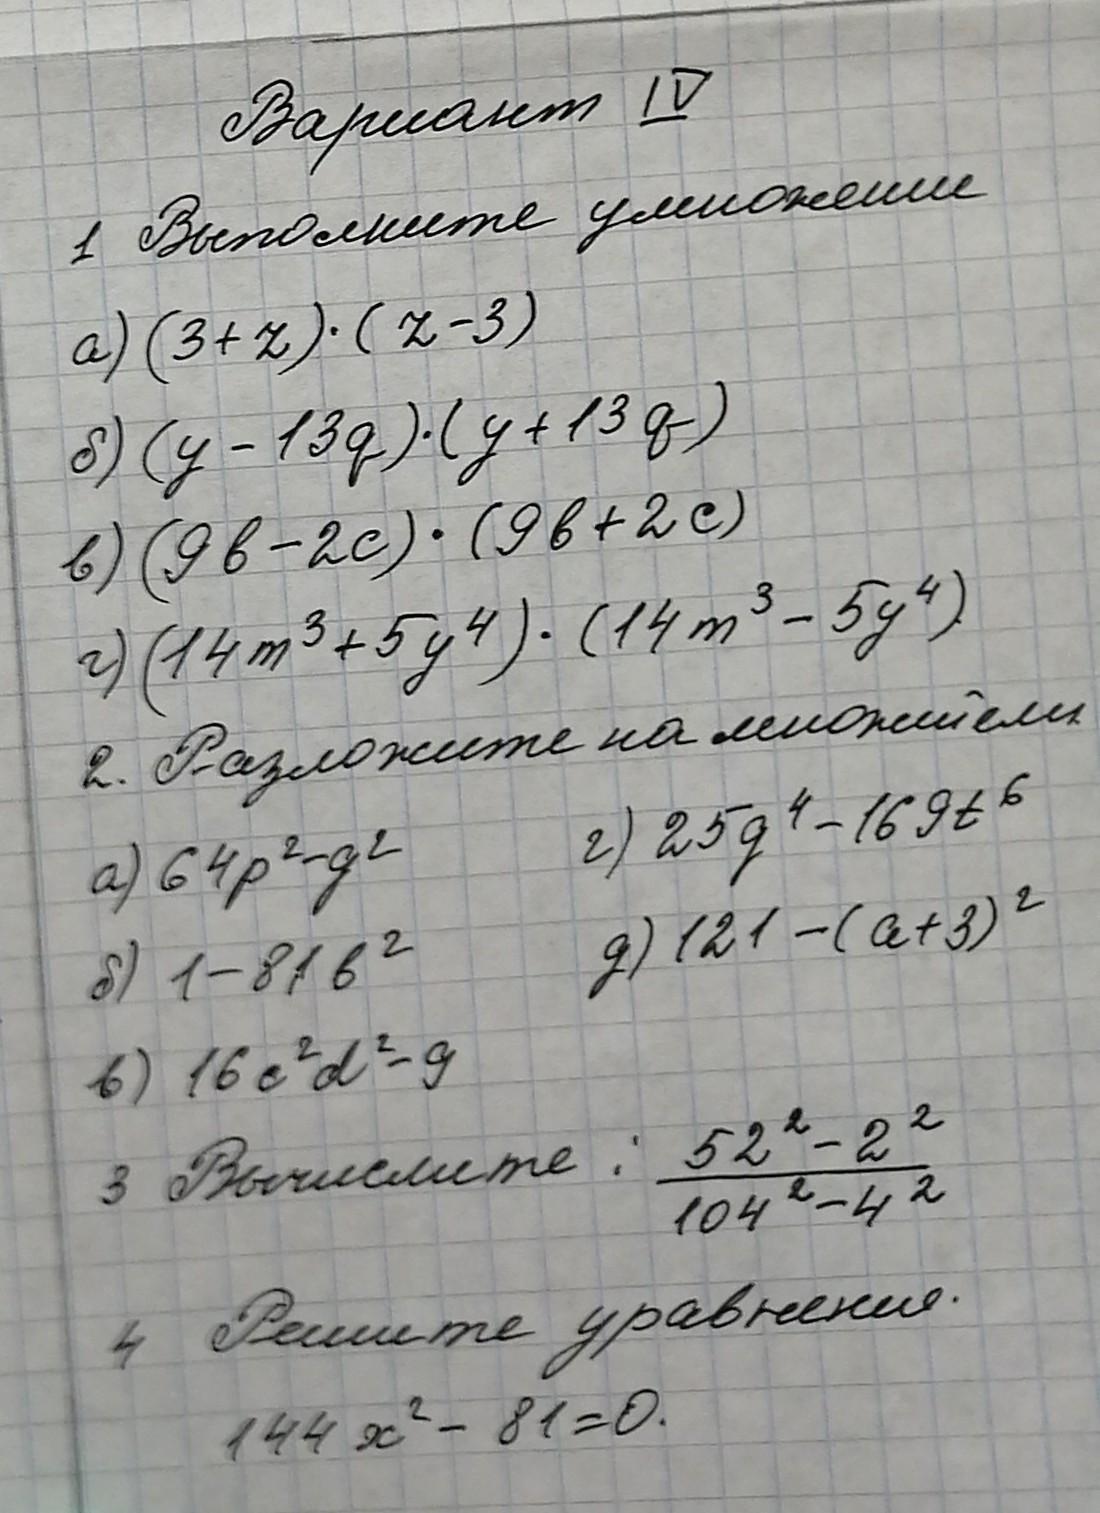 Вариант IV
1 Выполните умножении
а) (3+z)·(z-3)
б) (y-13q)·(y+13q)
в) (9b-2c)·(9b+2c)
г) (14m³+5y⁴)·(14m³-5y⁴)
2. Разложите на множители
а) 64p²-g²
б) 1-81b²
в) 16c²d²-9
г) 25g⁴-169t⁶
д) 121-(a+3)²
3 Вычислите: (52²-2²)/(104²-4²)
4 Решите уравнения.
144x²-81=0.